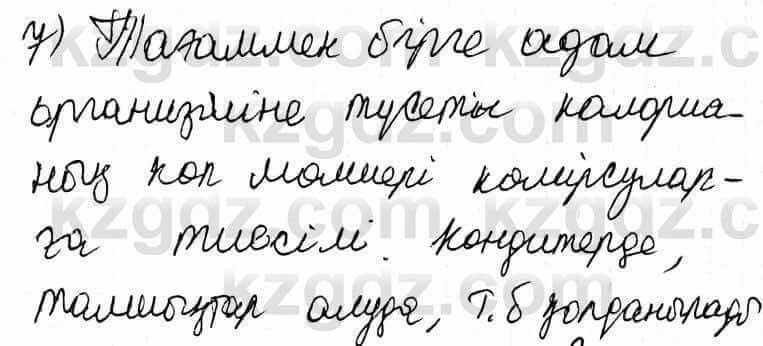 7) Тағаммен бірге адам
организміне түсетін калорма-
ның көп мөлшері көмірсулар-
ға тиесілі. кондитерде,
талшықтар алуда, т.б қолданылады